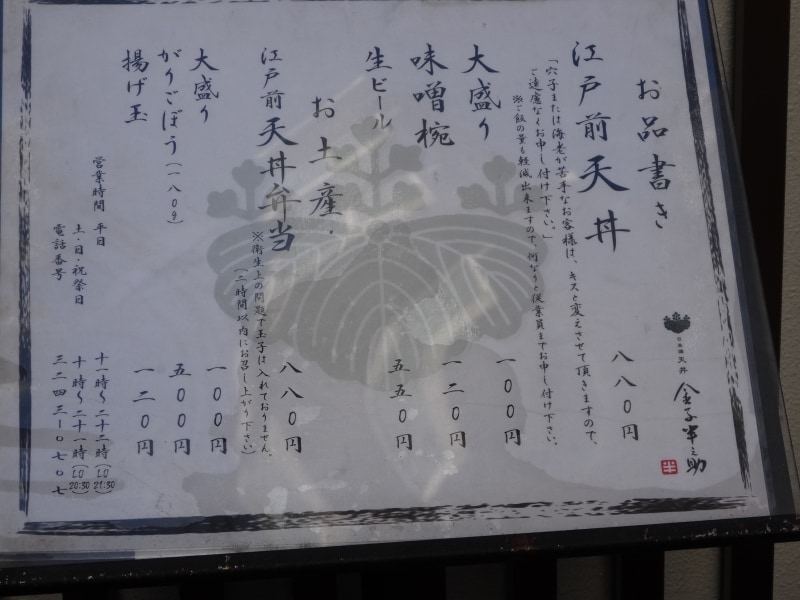 お品書き
江戸前天丼 八八〇円
「穴子または海老が苦手なお客様は、キスと変えさせて頂きますので、
ご遠慮なくお申し付け下さい。」
※ご飯の量も軽減出来ますので、何なりと従業員までお申し付け下さい。
大盛り 一〇〇円
味噌椀 一二〇円
生ビール 五五〇円
お土産
江戸前天丼弁当 八八〇円
※衛生上の問題で玉子は入れておりません。
(二時間以内にお召し上がり下さい)
大盛り 一〇〇円
がりごぼう(一八〇g) 五〇〇円
揚げ玉 一二〇円
営業時間 平日 十一時〜二十二時(LO 21:30)
土・日・祝祭日 十時〜二十一時(LO 20:30)
電話番号 三二四三-〇七〇七
日本橋 天丼
金子半之助
半